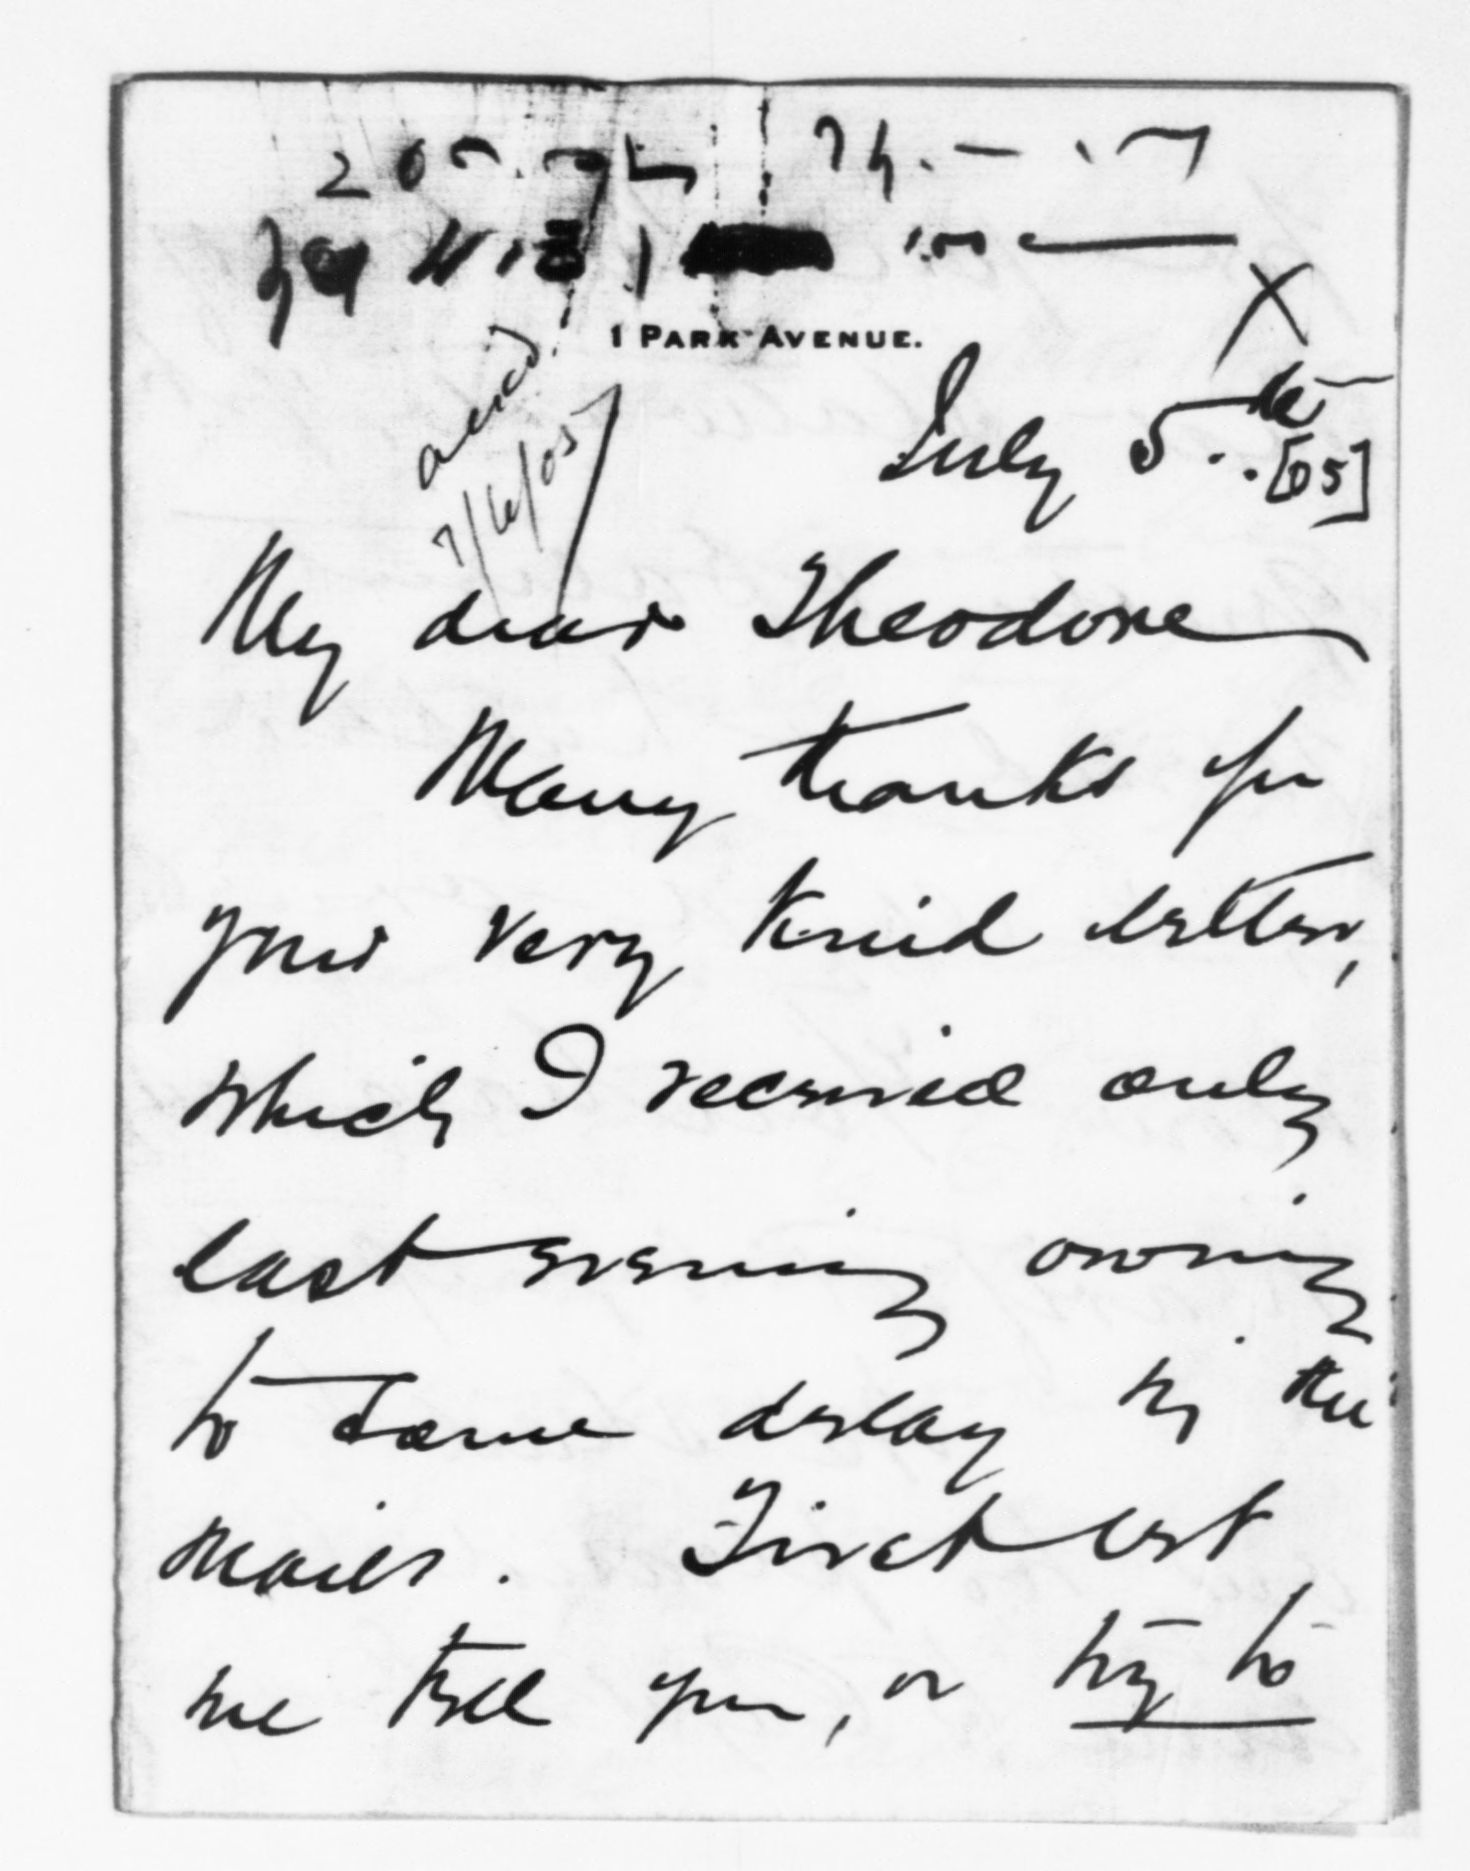 1 PARK AVENUE.
ackd.
7/6/05
X
July 5th
[05]
My dear Theodore
Many thanks for
your very kind letter,
which I received only
last evening owning
to some delay in the
mails. First let
me tell you, or try to